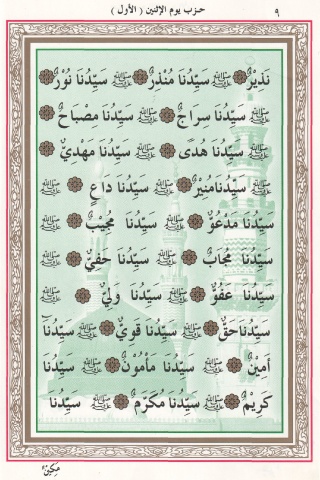 ٩ حزب يوم الإثنين ( الأول )
نَذِيرٌ ﷺ سَيِّدُنَا مُنْذِرٌ ﷺ سَيِّدُنَا نُورٌ
ﷺ سَيِّدُنَا سِرَاجٌ ﷺ سَيِّدُنَا مِصْبَاحٌ
ﷺ سَيِّدُنَا هُدًى ﷺ سَيِّدُنَا مَهْدِيٌّ
ﷺ سَيِّدُنَا مُنِيرٌ ﷺ سَيِّدُنَا دَاعٍ ﷺ
سَيِّدُنَا مَدْعُوٌّ ﷺ سَيِّدُنَا مُجِيبٌ ﷺ
سَيِّدُنَا مُجَابٌ ﷺ سَيِّدُنَا حَفِيٌّ ﷺ
سَيِّدُنَا عَفُوٌّ ﷺ سَيِّدُنَا وَلِيٌّ ﷺ
سَيِّدُنَا حَقٌّ ﷺ سَيِّدُنَا قَوِيٌّ ﷺ سَيِّدُنَا
أَمِينٌ ﷺ سَيِّدُنَا مَأْمُونٌ ﷺ سَيِّدُنَا
كَرِيمٌ ﷺ سَيِّدُنَا مُكَرَّمٌ ﷺ سَيِّدُنَا
مَكِينٌ